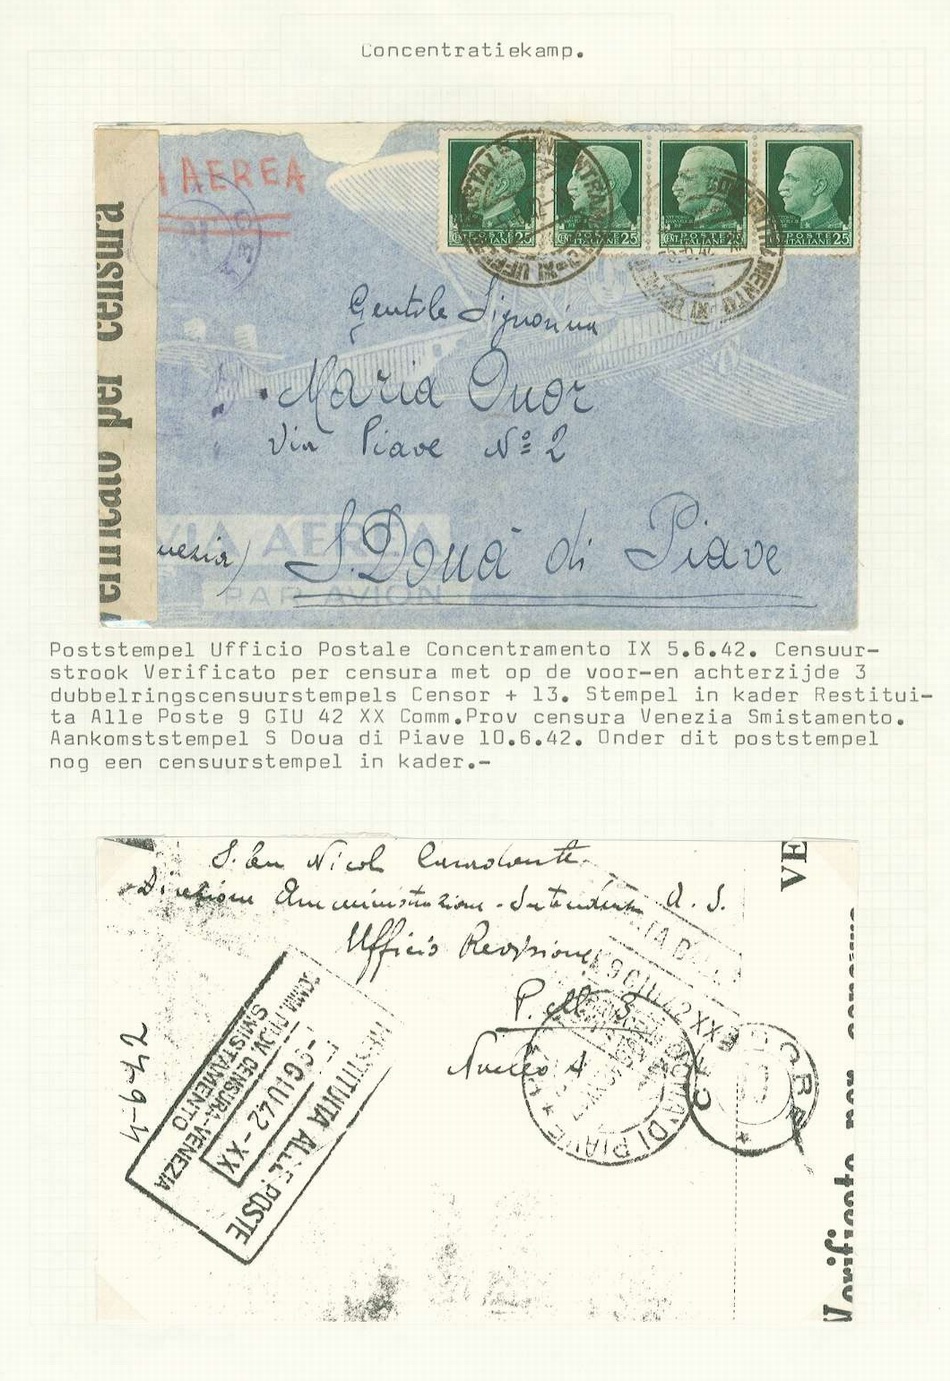 Concentratiekamp.
AEREA
POSTE ITALIANE 25
POSTE ITALIANE 25
POSTE ITALIANE 25
POSTE ITALIANE 25
Verificato per censura
Gentile Signorina
Maria Onor
Via Piave Nº 2
S. Donà di Piave
VIA AEREA
PAR AVION
Poststempel Ufficio Postale Concentramento IX 5.6.42. Censuur-
strook Verificato per censura met op de voor-en achterzijde 3
dubbelringscensuurstempels Censor + 13. Stempel in kader Restitui-
ta Alle Poste 9 GIU 42 XX Comm.Prov censura Venezia Smistamento.
Aankomststempel S Doua di Piave 10.6.42. Onder dit poststempel
nog een censuurstempel in kader.-
S. Nicol
Direzione Amministrazione - Intendenza A. S.
Ufficio Revisione
P. M. 3
Nucleo A
VE
RESTITUITA ALLE POSTE
-9 GIU 42 - XX
COMM. PROV. CENSURA - VENEZIA
SMISTAMENTO
9 GIU 42 XX
DONA' DI PIAVE
Verificato per censura